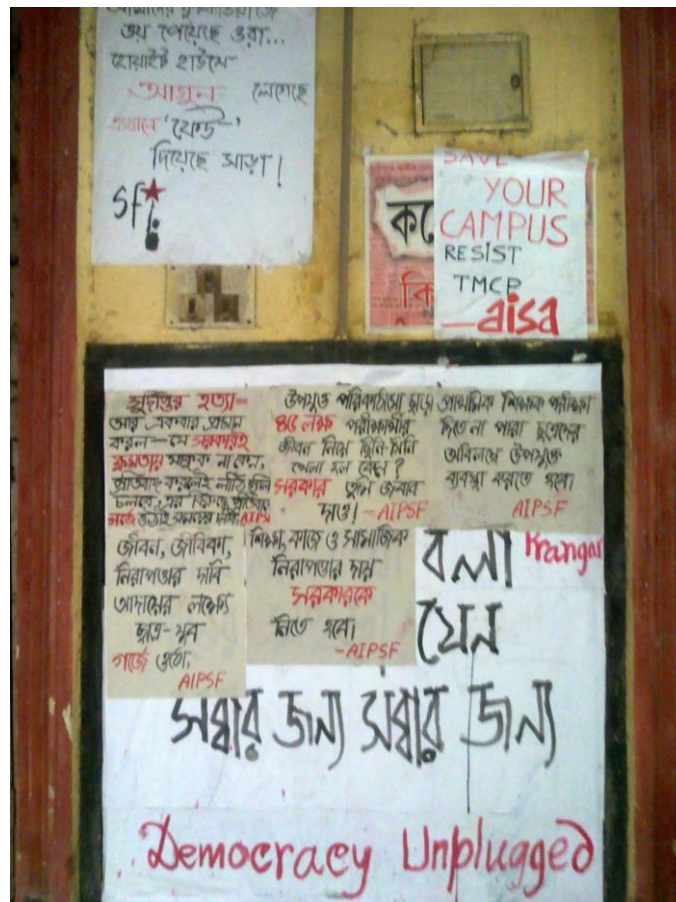 ভয় পেয়েছে ওরা...
হোয়াইট হাউসে
আগুন লেগেছে
এখানে 'ফেড-'
দিয়েছে সাড়া!
SFI
SAVE
YOUR
CAMPUS
RESIST
TMCP
—aisa
কি
সুদীপ্তর হত্যা—
আর একবার প্রমাণ
করল— যে সরকারই
ক্ষমতায় থাকুক না কেন,
প্রতিবাদ করলেই লাঠি গুলি
চলবে, এর বিরুদ্ধে প্রতিবাদে
AIPSF
উপযুক্ত পরিকাঠামো ছাড়া
৪৫ লক্ষ পরীক্ষার্থীর
জীবন নিয়ে ছিনি-মিনি
খেলা হল কেন?
সরকার তুমি জবাব
দাও! — AIPSF
প্রাথমিক শিক্ষক পরীক্ষা
দিতে না পারা ছাত্রদের
অবিলম্বে উপযুক্ত
ব্যবস্থা করতে হবে।
AIPSF
জীবন, জীবিকা,
নিরাপত্তার দাবি
আদায়ের লক্ষ্যে
ছাত্র-যুব
গর্জে ওঠো,
AIPSF
শিক্ষা, কাজ ও সামাজিক
নিরাপত্তার দায়
সরকারকে
নিতে হবে।
-AIPSF
বলা
যেন
সব্বার জন্য সব্বার জন্য
Democracy Unplugged